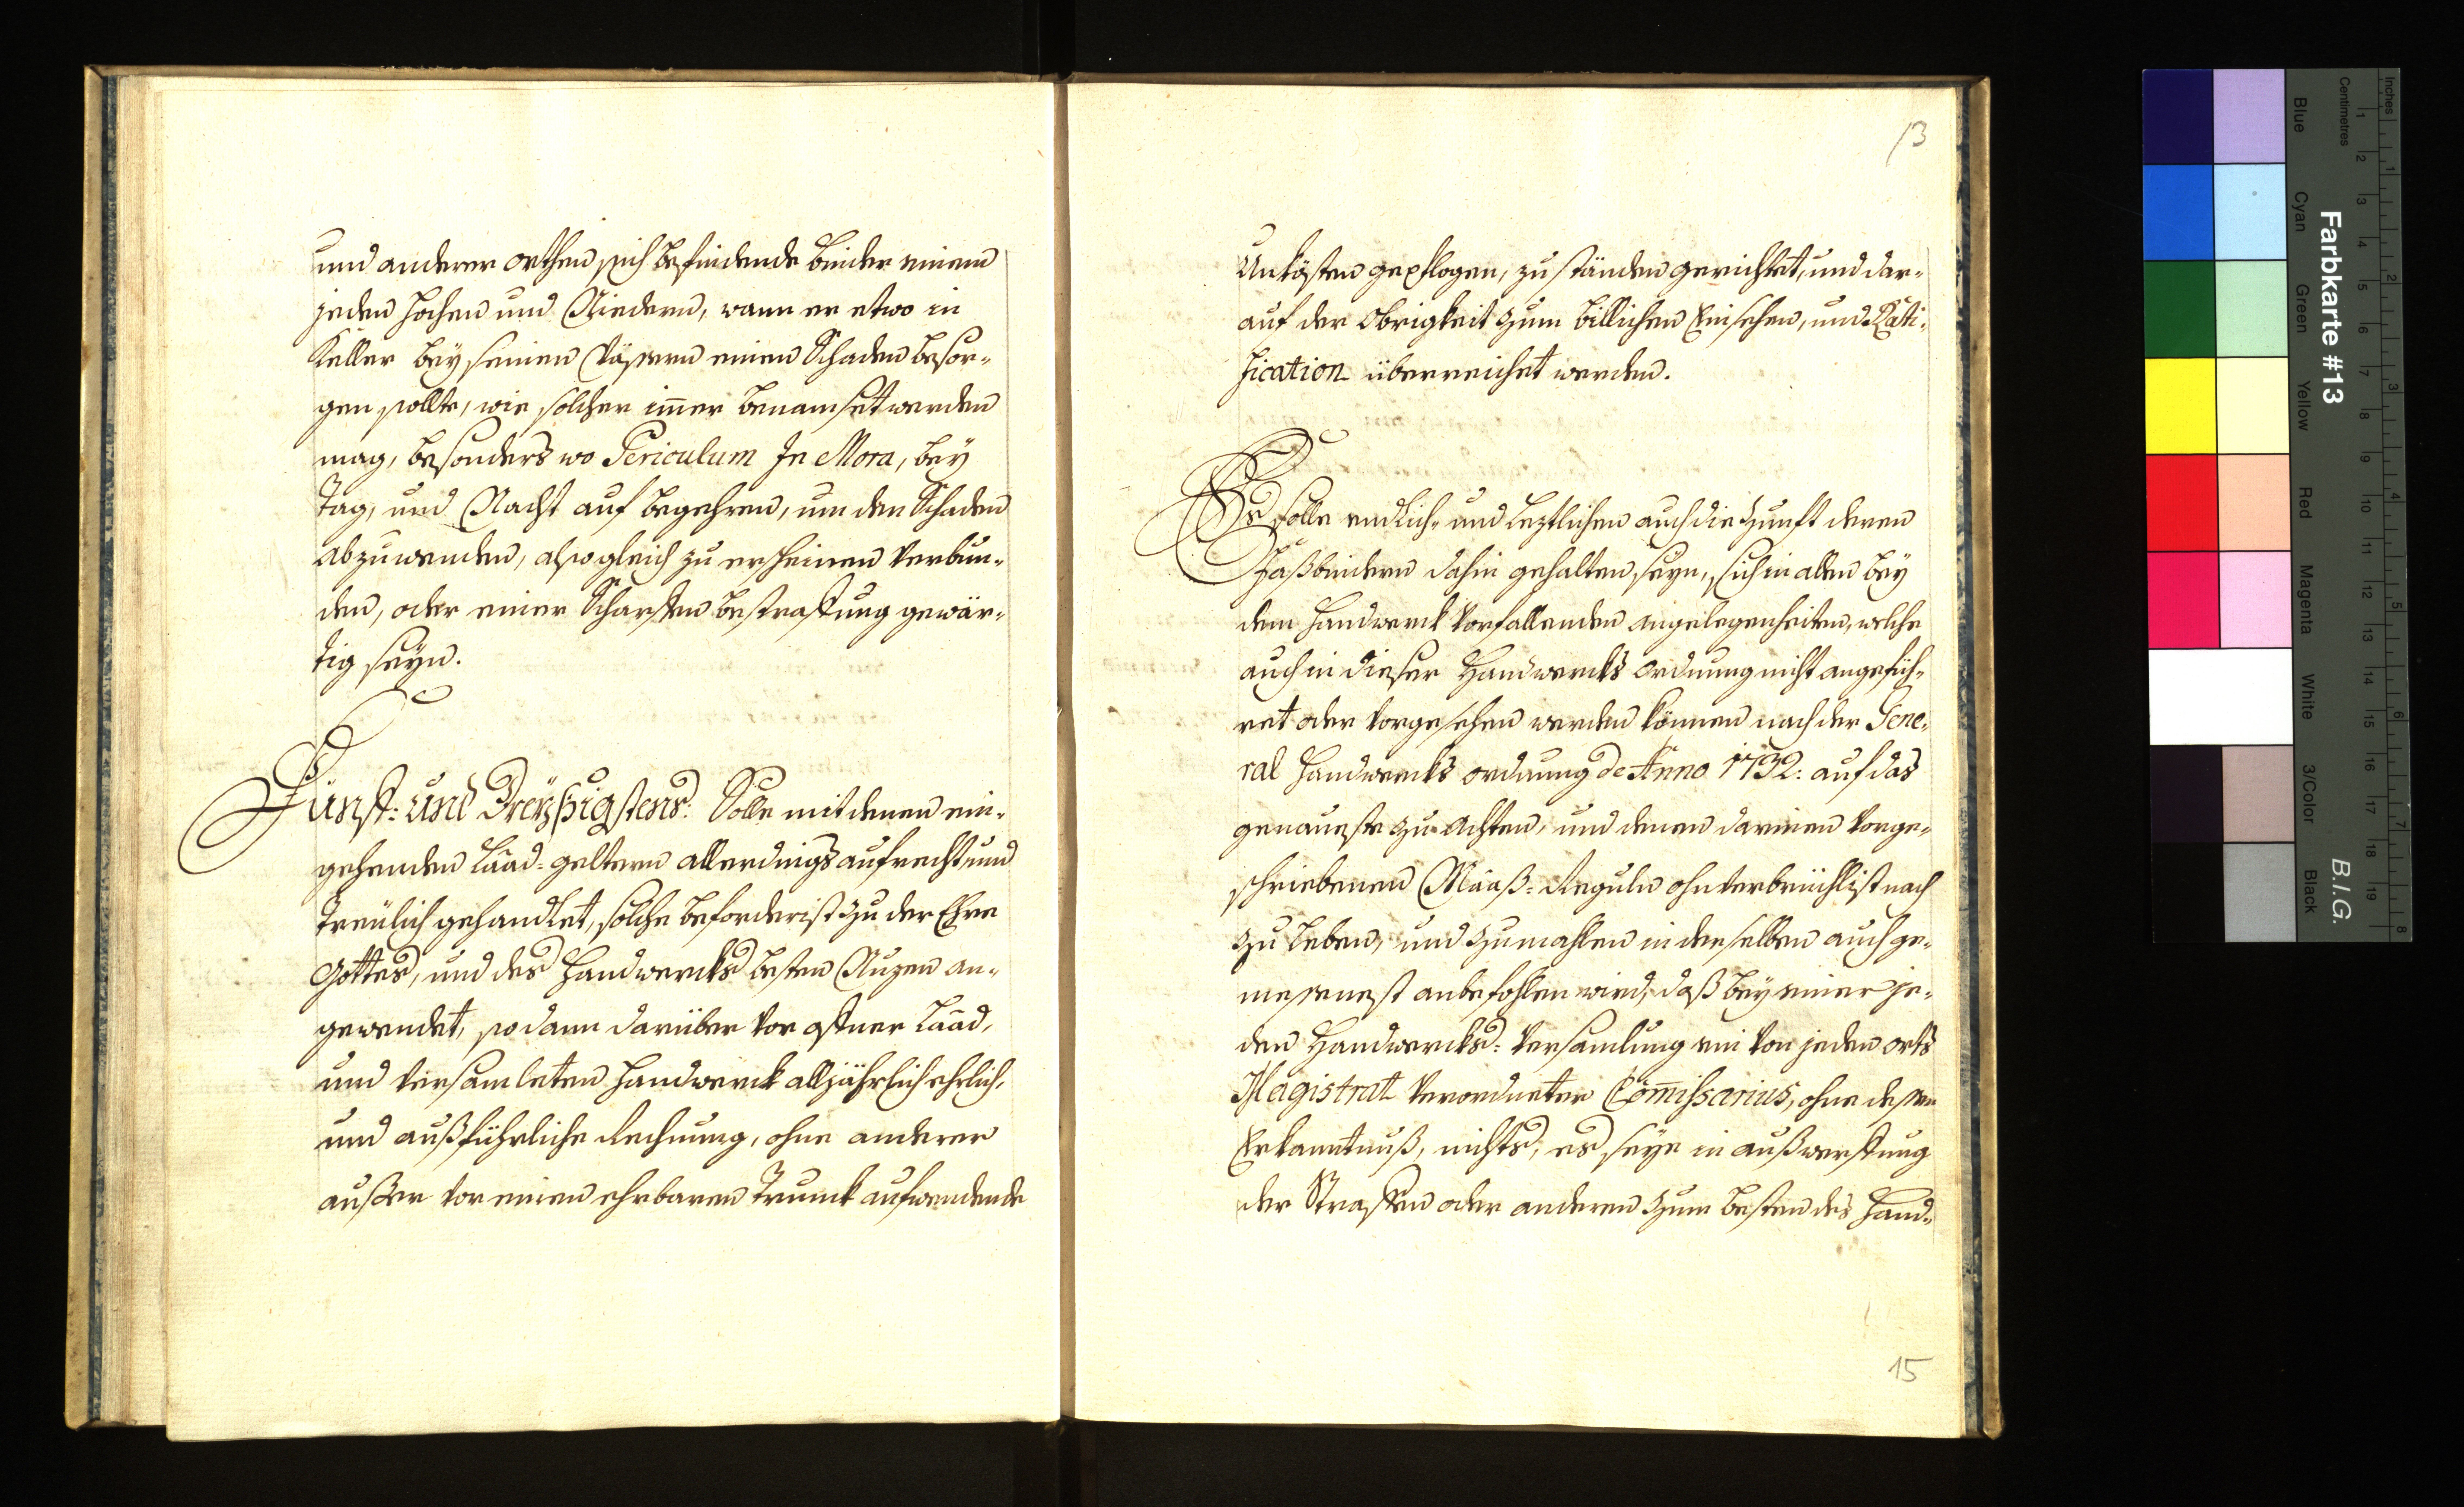 und anderer orthen sich befindende binder einem
jeden hochen und Niedern, wann er etwo in
Keller bey seinen Vässern einen Schaden besor¬
gen sollte, wie solcher im̄er benamset werden
mag, besonders wo Periculum In Mora, bey
Tag, und Nacht auf begehren, um den Schaden
abzuwenden, alsogleich zu erscheinen verbun¬
den, oder einer Scharffen bestraffung gewär¬
tig seyn.
Fünff: und Dreyßigstens: Solle mit denen ein¬
gehenden Laad-geltern allerdings aufrecht, und
Treülich gehandlet, solche beforderist zu der Ehre
Gottes, und des Handwercks besten Nuzen an¬
gewendet, so dann darüber vor offner Laad,
und versamleten Handwerck alljährlich ehrlich,
und außführliche Rechnung, ohne anderer
ausser vor einen ehrbaren Trunck aufwendende
13
Unkösten gepflogen, zu ständen gerichtet, und dar¬
auf der Obrigkeit zum billichen Einsehen, und Rati¬
fication überreichet werden.
Es solle endlich- und leztlichen auch die Zunft deren
Faßbindern dahin gehalten seyn, sich in allen bey
dem Handwerck vorfallenden angelegenheiten, welche
auch in dieser Handwercks ordnung nicht angefüh¬
ret oder vorgesehen werden können nach der Gene¬
ral Handwercks ordnung de Anno 1732: auf das
genaueste zu achten, und denen darinen vorge¬
schriebenen Maaß-Reguln ohnverbrüchlist nach
zu leben, und zumahlen in denselben auch ge¬
messenest anbefohlen wird, daß bey einer je¬
den Handwercks-versamlung ein von jeden orts
Magistrat verordneter Com̄issarius, ohne dessen
Erkanntnuß, nichts, es seye in außwerffung
der Straffen oder anderen zum besten des Hand¬
15
Farbkarte #13
B.I.G.
Inches
Centimetres
Blue
Cyan
Green
Yellow
Red
Magenta
White
3/Color
Black
1 2 3 4 5 6 7 8 9 10 11 12 13 14 15 16 17 18 19
1 2 3 4 5 6 7 8